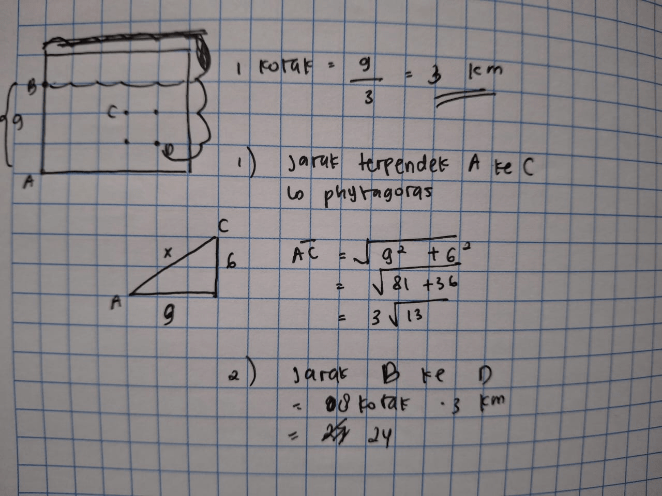 1 kotak = 9/3 = 3 km
B
C
9
D
A
1) Jarak terpendek A ke C
↳ phytagoras
C
x
6
A
9
AC = √9² + 6²
= √81 + 36
= 3√13
2) Jarak B ke D
= 8 kotak . 3 km
= 24